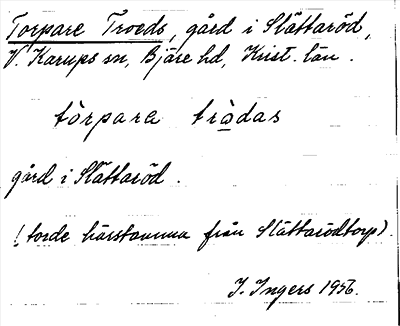 Torpare Troeds, gård i Slättaröd,
V. Karups sn, Bjäre hd, Krist. län.
tòrpara tròdas
gård i Slättaröd.
(torde härstamma från Slättarödtorp).
I. Ingers 1956.